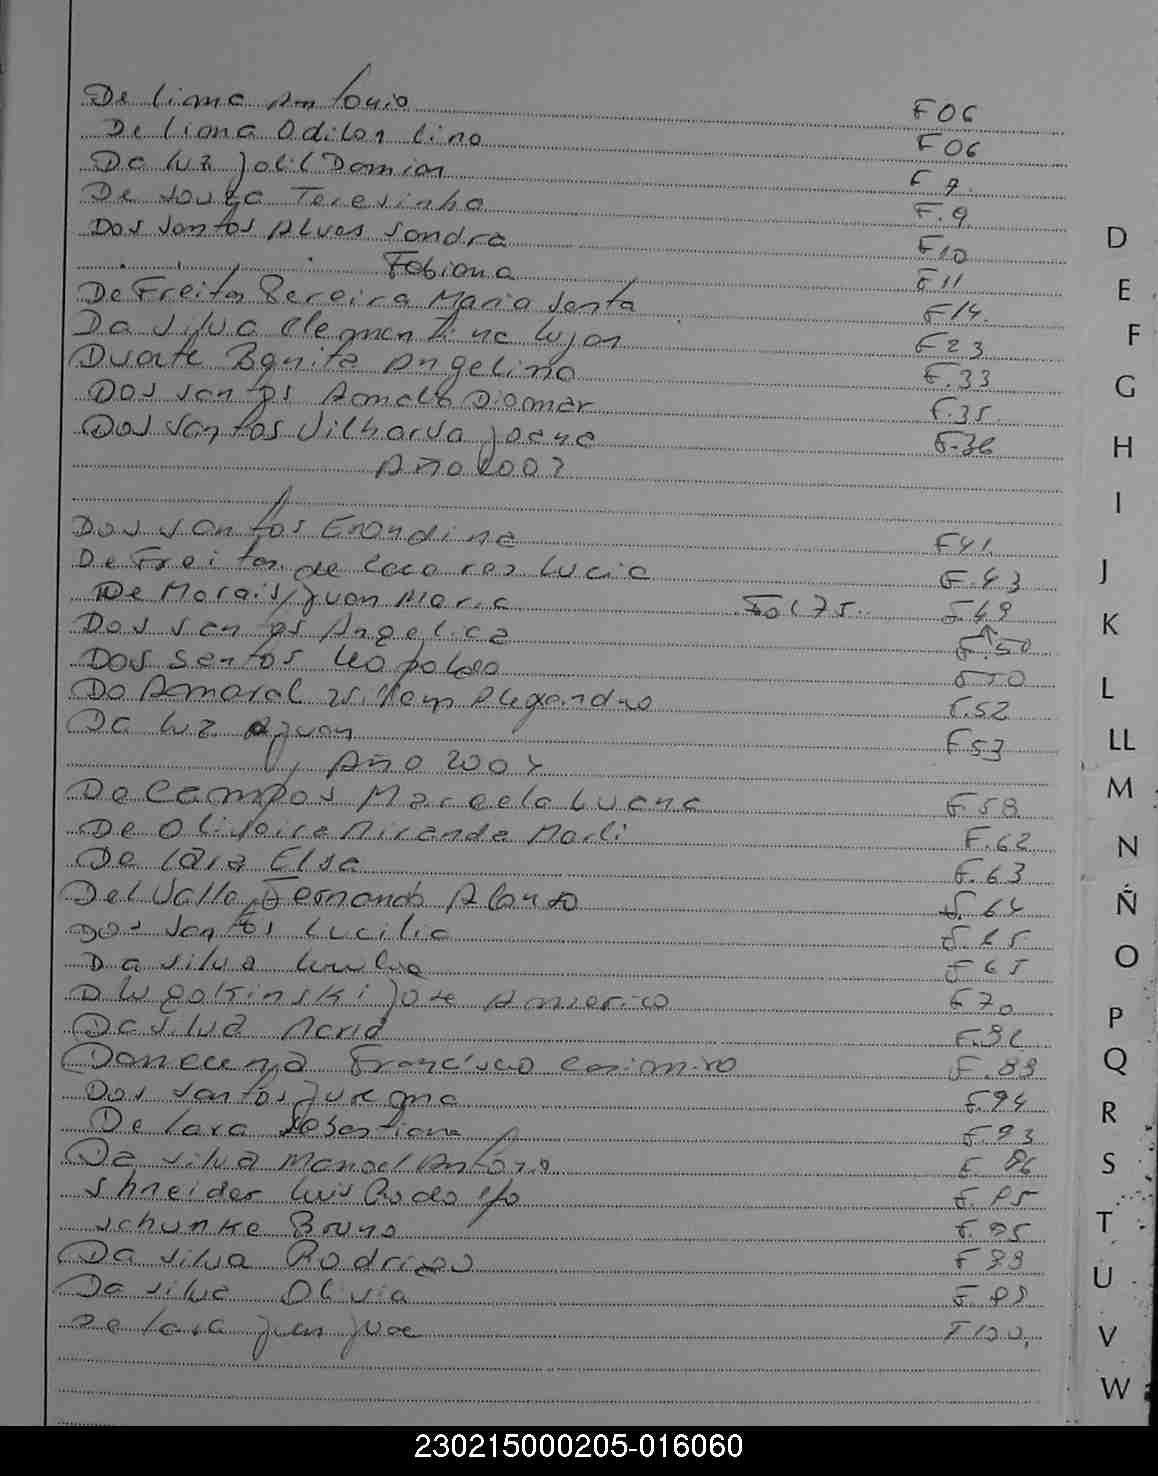 De lima Antonio F06
De lima Odilon lino F06
Da luz Jolil Damian F 9.
De Souza Teresinha F.9.
Dos Santos Alves Sandra F10
Fabiana F11
De Freitas Pereira Maria Santa F14.
Da Silva Clementina Lujan F23
Duarte Benite Angelina F.33
Dos Santos Diomar F.35.
Dos Santos Vilharva F.36
Año 2002
Dos Santos Erondina F41.
De Freitas de Caceres Lucia F.43
De Morais, Juan Maria Fol 75. F.49
Dos Santos Angelica F.50
Dos Santos Leopoldo F50
Do Amaral Alexandro F.52
Da luz Juan F.53
Año 2004
De Campos Marcela Luana F.58
De Oliveira Miranda Marli F.62
De lara Elsa F.63
Del Valle Fernando Alonzo F.64
Dos Santos Lucilia F.65
Da Silva F65
Dwgokinski Jose Americo F70
Da Silva Maria
Francisco Casimiro F.89
Dos Santos F.94
De lara Sebastiana F.93
Da Silva Manoel Antonio F.96
Shneider Luis Rodolfo F.95
Schunke Bruno F.95
Da Silva Rodrigo F99
Da Silva Olivia F.99
De lara Juan Jose F100.
D
E
F
G
H
I
J
K
L
LL
M
N
Ñ
O
P
Q
R
S
T
U
V
W
230215000205-016060